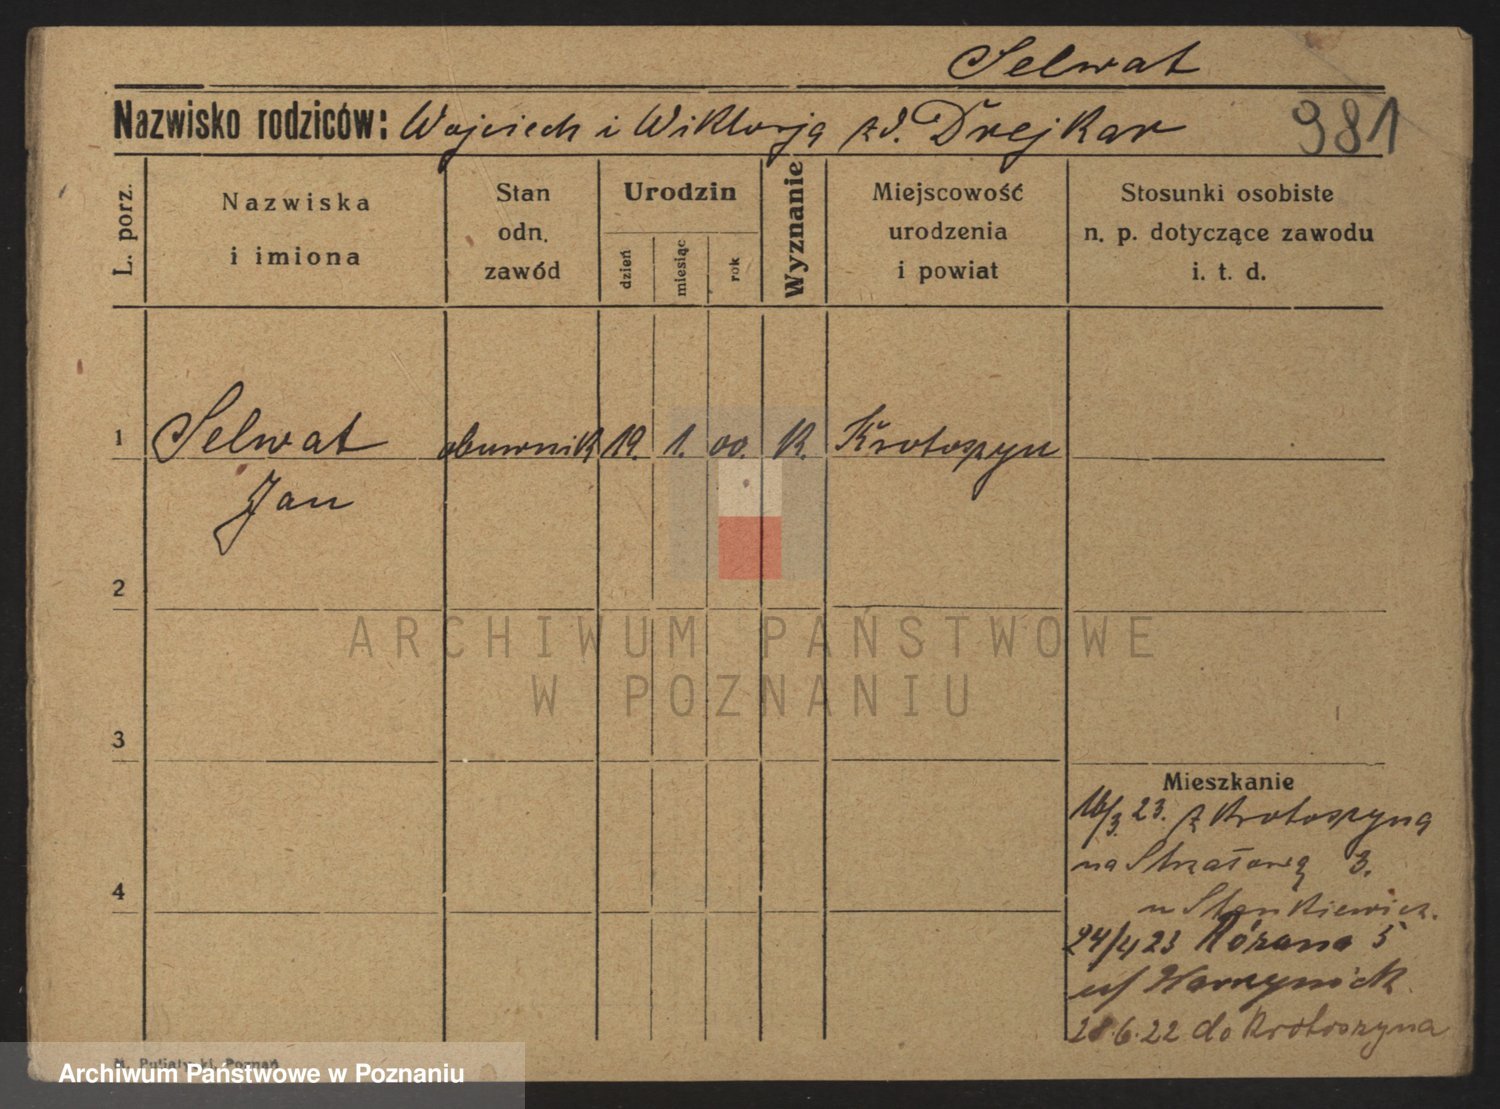 Selwat
Nazwisko rodziców: Wojciech i Wiktorja zd. Drejkar
981
L. porz.
Nazwiska
i imiona
Stan
odn.
zawód
Urodzin
dzień
miesiąc
rok
Wyznanie
Miejscowość
urodzenia
i powiat
Stosunki osobiste
n. p. dotyczące zawodu
i. t. d.
1 Selwat obuwnik 19. 1. 00. K. Krotoszyn
Jan
2
ARCHIWUM PAŃSTWOWE
W POZNANIU
3
Mieszkanie
16/3. 23. z Krotoszyna
na Strzałową 3.
u Stankiewicz.
4
24/4 23 Różana 5
u/
28.6.22 do Krotoszyna
Poznań
Archiwum Państwowe w Poznaniu